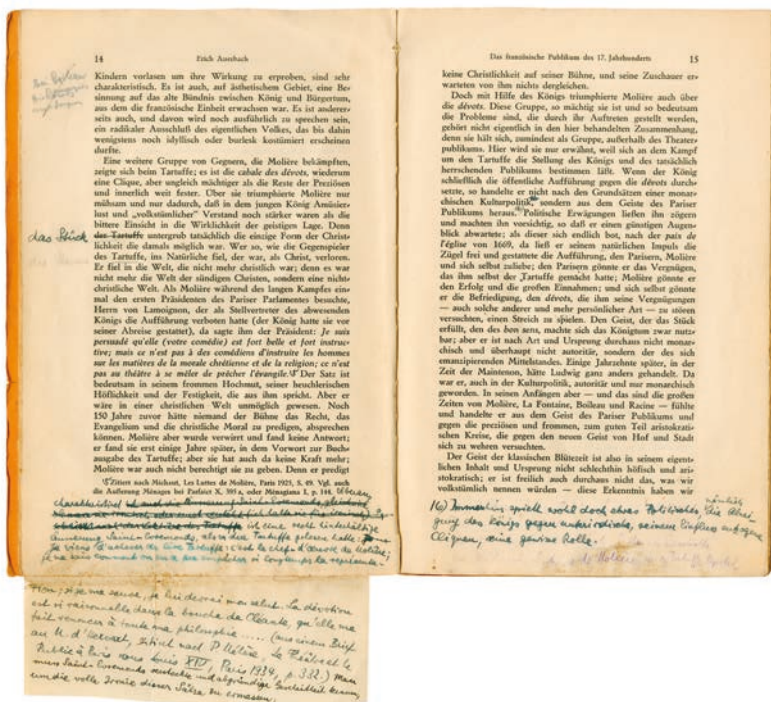 14
Erich Auerbach
Kindern vorlasen um ihre Wirkung zu erproben, sind sehr
charakteristisch. Es ist auch, auf ästhetischem Gebiet, eine Be-
sinnung auf das alte Bündnis zwischen König und Bürgertum,
aus dem die französische Einheit erwachsen war. Es ist anderer-
seits auch, und davon wird noch ausführlich zu sprechen sein,
ein radikaler Ausschluß des eigentlichen Volkes, das bis dahin
wenigstens noch idyllisch oder burlesk kostümiert erscheinen
durfte.
Eine weitere Gruppe von Gegnern, die Molière bekämpften,
zeigte sich beim Tartuffe; es ist die cabale des dévots, wiederum
eine Clique, aber ungleich mächtiger als die Reste der Preziösen
und innerlich weit fester. Über sie triumphierte Molière nur
mühsam und nur dadurch, daß in dem jungen König Amüsier-
lust und „volkstümlicher“ Verstand noch stärker waren als die
bittere Einsicht in die Wirklichkeit der geistigen Lage. Denn
das Stück
der Tartuffe untergrub tatsächlich die einzige Form der Christ-
lichkeit die damals möglich war. Wer so, wie die Gegenspieler
des Tartuffe, ins Natürliche fiel, der war, als Christ, verloren.
Er fiel in die Welt, die nicht mehr christlich war; denn es war
nicht mehr die Welt der sündigen Christen, sondern eine nicht-
christliche Welt. Als Molière während des langen Kampfes ein-
mal den ersten Präsidenten des Pariser Parlamentes besuchte,
Herrn von Lamoignon, der als Stellvertreter des abwesenden
Königs die Aufführung verboten hatte (der König hatte sie vor
seiner Abreise gestattet), da sagte ihm der Präsident: Je suis
persuadé qu'elle (votre comédie) est fort belle et fort instruc-
tive; mais ce n'est pas à des comédiens d'instruire les hommes
sur les matières de la morale chrétienne et de la religion; ce n'est
pas au théâtre à se mêler de prêcher l'évangile. Der Satz ist
bedeutsam in seinem frommen Hochmut, seiner heuchlerischen
Höflichkeit und der Festigkeit, die aus ihm spricht. Aber er
wäre in einer christlichen Welt unmöglich gewesen. Noch
150 Jahre zuvor hätte niemand der Bühne das Recht, das
Evangelium und die christliche Moral zu predigen, absprechen
können. Molière aber wurde verwirrt und fand keine Antwort;
er fand sie erst einige Jahre später, in dem Vorwort zur Buch-
ausgabe des Tartuffe; aber sie hat auch da keine Kraft mehr;
Molière war auch nicht berechtigt sie zu geben. Denn er predigt
Zitiert nach Michaut, Les Luttes de Molière, Paris 1925, S. 49. Vgl. auch
die Äußerung Ménages bei Parfaict X, 395 a, oder Ménagiana I, p. 144. Überaus
ist eine recht hinterhältige
Äusserung Saint-Evremonds, als er den Tartuffe gelesen hatte:
Je viens d'achever de lire Tartuffe: c'est le chef-d'œuvre de Molière;
je ne sais comment on en a pu empêcher si longtemps la représenta-
tion; si je me sauve, je lui devrai mon salut. La dévotion
est si raisonnable dans la bouche de Cléante, qu'elle me
fait renoncer à toute ma philosophie ..... (aus einem Brief
an M. d'Hervart, zitiert nach P. Mélèse, Le Théâtre et le
Public à Paris sous Louis XIV, Paris 1934, p. 332.) Man
muss Saint-Evremonds versteckte und abgründige Gescheitheit kennen,
um die volle Ironie dieser Sätze zu ermessen.
Das französische Publikum des 17. Jahrhunderts
15
keine Christlichkeit auf seiner Bühne, und seine Zuschauer er-
warteten von ihm nichts dergleichen.
Doch mit Hilfe des Königs triumphierte Molière auch über
die dévots. Diese Gruppe, so mächtig sie ist und so bedeutsam
die Probleme sind, die durch ihr Auftreten gestellt werden,
gehört nicht eigentlich in den hier behandelten Zusammenhang,
denn sie hält sich, zumindest als Gruppe, außerhalb des Theater-
publikums. Hier wird sie nur erwähnt, weil sich an dem Kampf
um den Tartuffe die Stellung des Königs und des tatsächlich
herrschenden Publikums bestimmen läßt. Wenn der König
schließlich die öffentliche Aufführung gegen die dévots durch-
setzte, so handelte er nicht nach den Grundsätzen einer monar-
chischen Kulturpolitik, sondern aus dem Geiste des Pariser
Publikums heraus. Politische Erwägungen ließen ihn zögern
und machten ihn vorsichtig, so daß er einen günstigen Augen-
blick abwartete; als dieser sich endlich bot, nach der paix de
l'église von 1669, da ließ er seinem natürlichen Impuls die
Zügel frei und gestattete die Aufführung, den Parisern, Molière
und sich selbst zuliebe; den Parisern gönnte er das Vergnügen,
das ihm selbst der Tartuffe gemacht hatte; Molière gönnte er
den Erfolg und die großen Einnahmen; und sich selbst gönnte
er die Befriedigung, den dévots, die ihm seine Vergnügungen
— auch solche anderer und mehr persönlicher Art — zu stören
versuchten, einen Streich zu spielen. Den Geist, der das Stück
erfüllt, den des bon sens, machte sich das Königtum zwar nutz-
bar; aber er ist nach Art und Ursprung durchaus nicht monar-
chisch und überhaupt nicht autoritär, sondern der des sich
emanzipierenden Mittelstandes. Einige Jahrzehnte später, in der
Zeit der Maintenon, hätte Ludwig ganz anders gehandelt. Da
war er, auch in der Kulturpolitik, autoritär und nur monarchisch
geworden. In seinen Anfängen aber — und das sind die großen
Zeiten von Molière, La Fontaine, Boileau und Racine — fühlte
und handelte er aus dem Geist des Pariser Publikums und
gegen die preziösen und frommen, zum guten Teil aristokrati-
schen Kreise, die gegen den neuen Geist von Hof und Stadt
sich zu wehren versuchten.
Der Geist der klassischen Blütezeit ist also in seinem eigent-
lichen Inhalt und Ursprung nicht schlechthin höfisch und ari-
stokratisch; er ist freilich auch durchaus nicht das, was wir
volkstümlich nennen würden — diese Erkenntnis haben wir
nämlich
16) Immerhin spielt wohl doch etwas Politisches, die Abnei-
gung des Königs gegen antihöfische, seinem Einfluss entzogene
Cliquen, eine gewisse Rolle.